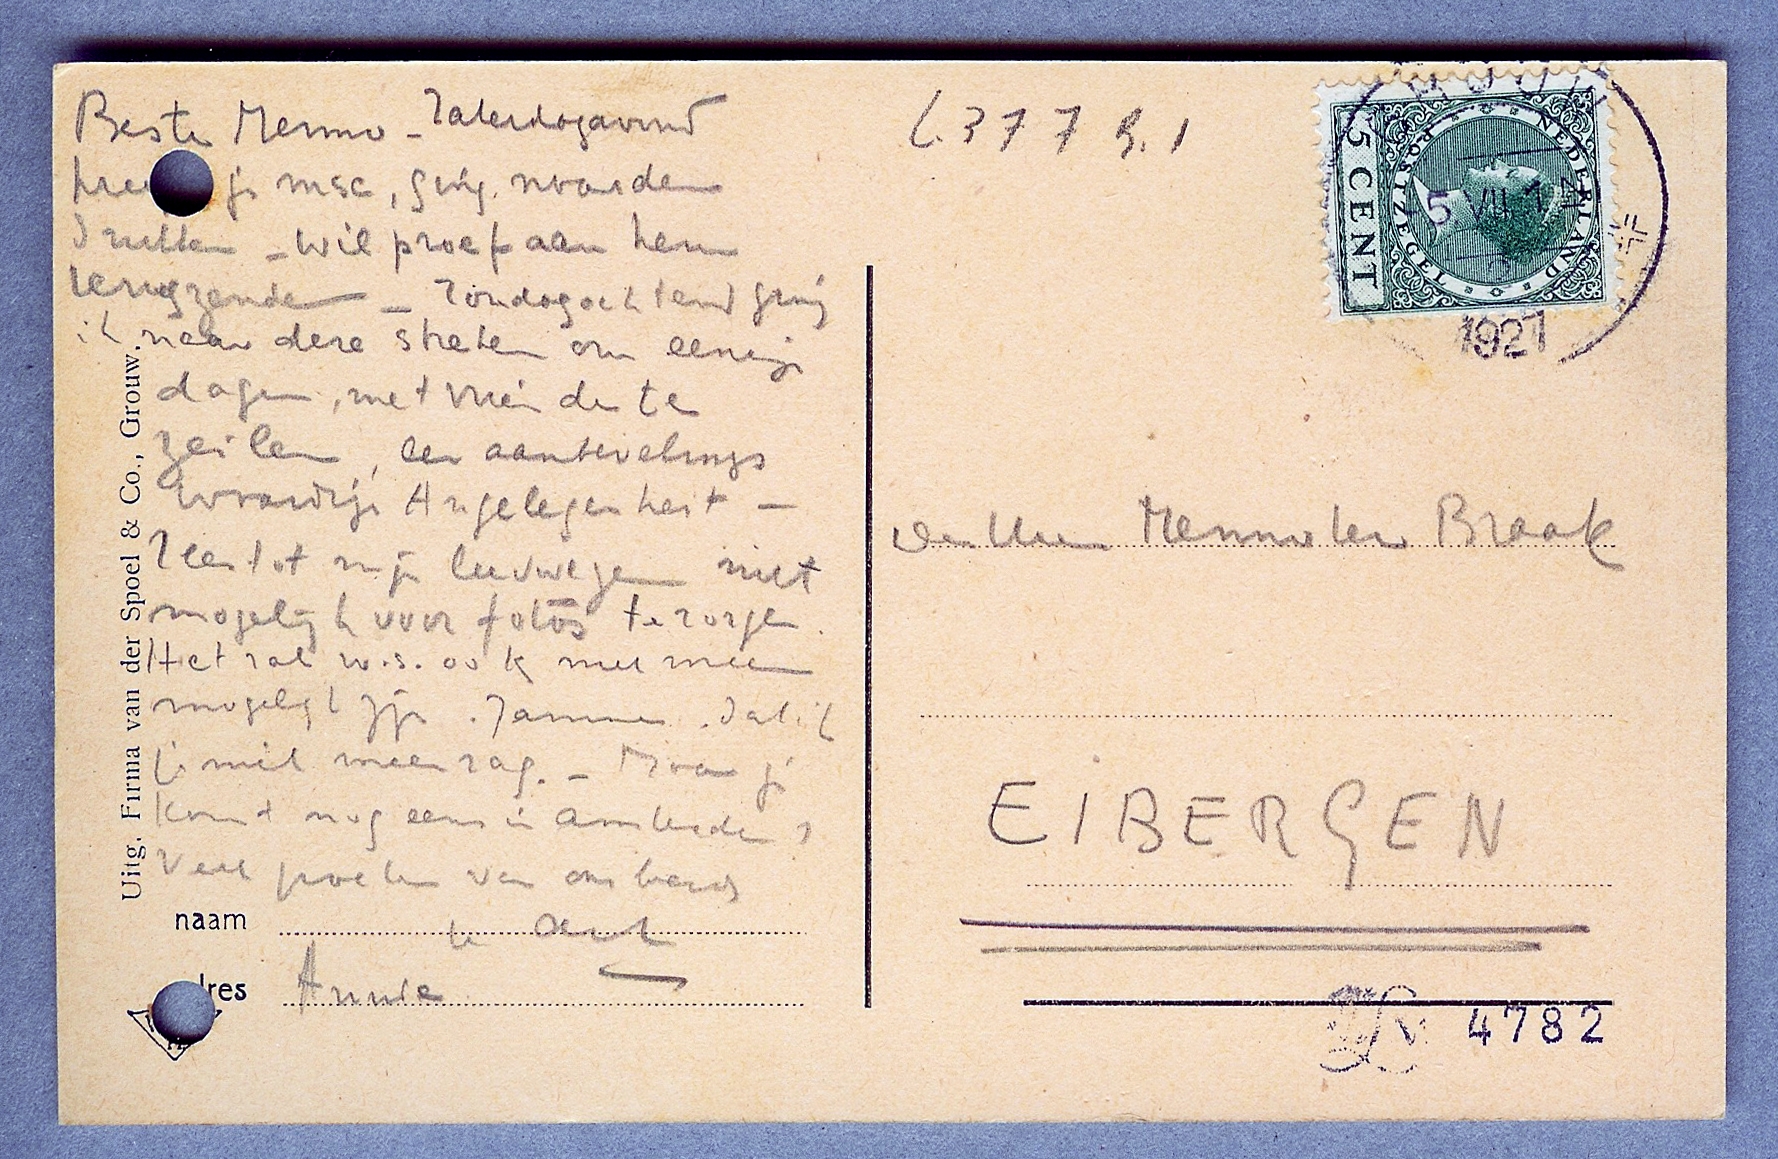 Beste Menno - Zaterdagavond
kreeg je msc, ging. naar den
Drukker - wil proef aan hem
terugzenden - Zondagochtend ging
ik naar deze streken om eenige
dagen, met vrienden te
zeilen, een aanbevelings
waardige Angelegenheit -
Zeer tot mijn leedwezen niet
mogelijk voor foto's te zorgen.
Het zal w.s. ook niet meer
mogelijk zijn. Jammer. dat ik
je niet meer zag. - Maar je
komt nog eens in Amsterdam?
Veel groeten van ons beide
naam
adres Annie
Uitg. Firma van der Spoel & Co., Grouw.
C.377 B.1
NEDERLAND
POSTZEGEL
5 CENT
5 VII
1927
Den Heer Menno ter Braak
EIBERGEN
4782